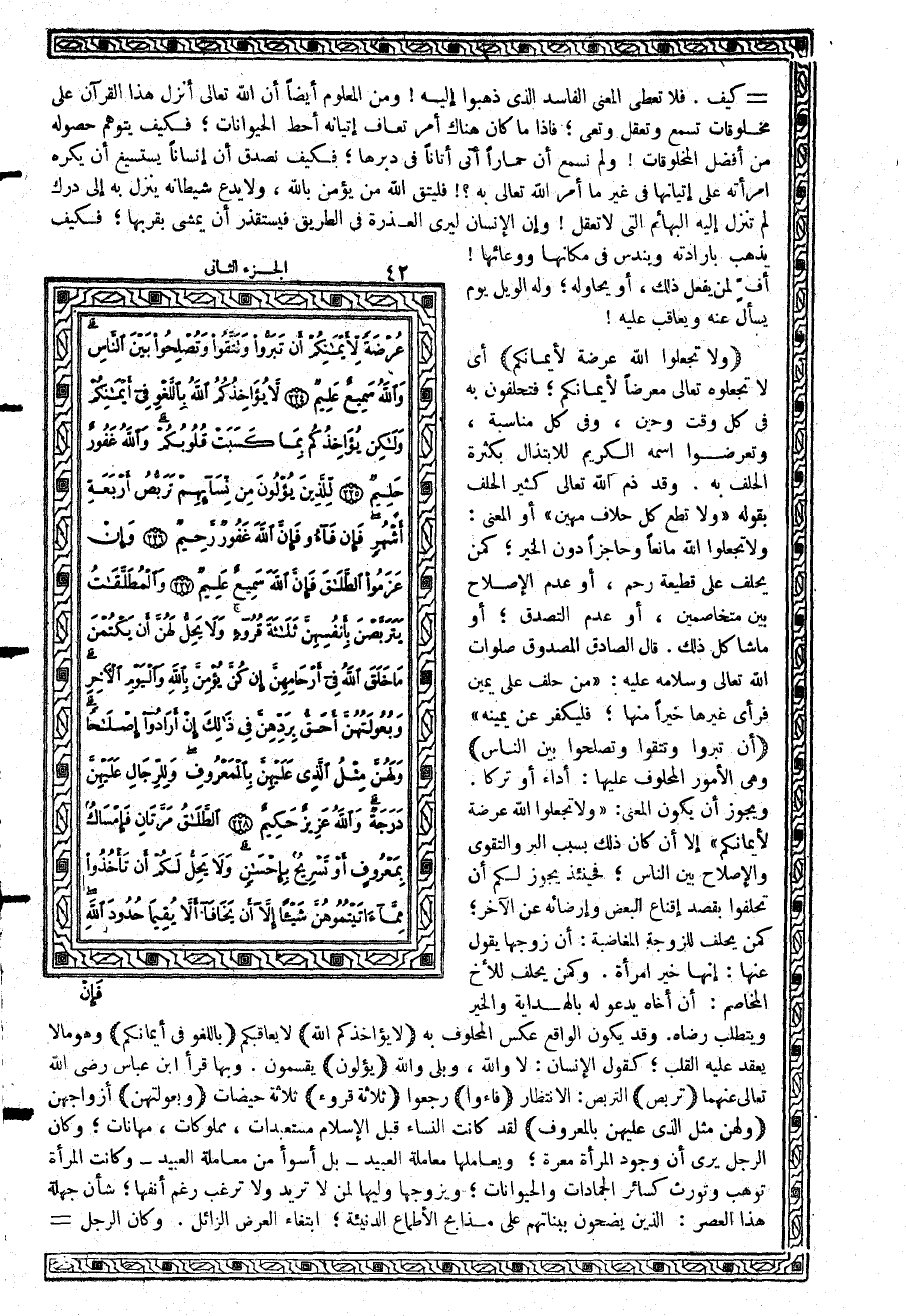 = كيف . فلا تعطى المعنى الفاسد الذى ذهبوا إليه ! ومن المعلوم أيضاً أن الله تعالى أنزل هذا القرآن على
مخلوقات تسمع وتعقل وتعى ؛ فاذا ما كان هناك أمر تعاف إتيانه أحط الحيوانات ؛ فكيف يتوهم حصوله
من أفضل المخلوقات ! ولم نسمع أن حماراً أتى أتاناً فى دبرها ؛ فكيف نصدق أن إنساناً يستسيغ أن يكره
امرأته على إتيانها فى غير ما أمر الله تعالى به ؟! فليتق الله من يؤمن بالله ، ولايدع شيطانه ينزل به إلى درك
لم تنزل إليه البهائم التى لاتعقل ! وإن الإنسان ليرى العذرة فى الطريق فيستقذر أن يمشى بقربها ؛ فكيف
يذهب بارادته ويندس فى مكانها ووعائها !
أفٍّ لمن يفعل ذلك ، أو يحاوله ؛ وله الويل يوم
يسأل عنه ويعاقب عليه !
﴿ولا تجعلوا الله عرضة لأيمانكم﴾ أى
لا تجعلوه تعالى معرضاً لأيمانكم ؛ فتحلفون به
فى كل وقت وحين ، وفى كل مناسبة ،
وتعرضوا اسمه الكريم للابتذال بكثرة
الحلف به . وقد ذم الله تعالى كثير الحلف
بقوله «ولا تطع كل حلاف مهين» أو المعنى :
ولاتجعلوا الله مانعاً وحاجزاً دون الخير ؛ كمن
يحلف على قطيعة رحم ، أو عدم الإصلاح
بين متخاصمين ، أو عدم التصدق ؛ أو
ماشا كل ذلك . قال الصادق المصدوق صلوات
الله تعالى وسلامه عليه : «من حلف على يمين
فرأى غيرها خيراً منها ؛ فليكفر عن يمينه»
﴿أن تبروا وتتقوا وتصلحوا بين الناس﴾
وهى الأمور المحلوف عليها : أداء أو تركا .
ويجوز أن يكون المعنى : «ولاتجعلوا الله عرضة
لأيمانكم» إلا أن كان ذلك بسبب البر والتقوى
والإصلاح بين الناس ؛ فحينئذ يجوز لكم أن
تحلفوا بقصد إقناع البعض وإرضائه عن الآخر ؛
كمن يحلف للزوجة المغاضبة : أن زوجها يقول
عنها : إنها خير امرأة . وكمن يحلف للأخ
المخاصم : أن أخاه يدعو له بالهداية والخير
الجزء الثانى
٤٢
عُرْضَةً لِّأَيْمَٰنِكُمْ أَن تَبَرُّوا۟ وَتَتَّقُوا۟ وَتُصْلِحُوا۟ بَيْنَ ٱلنَّاسِ ۗ
وَٱللَّهُ سَمِيعٌ عَلِيمٌ ﴿٢٢٤﴾ لَّا يُؤَاخِذُكُمُ ٱللَّهُ بِٱللَّغْوِ فِىٓ أَيْمَٰنِكُمْ
وَلَٰكِن يُؤَاخِذُكُم بِمَا كَسَبَتْ قُلُوبُكُمْ ۗ وَٱللَّهُ غَفُورٌ
حَلِيمٌ ﴿٢٢٥﴾ لِّلَّذِينَ يُؤْلُونَ مِن نِّسَآئِهِمْ تَرَبُّصُ أَرْبَعَةِ
أَشْهُرٍ ۖ فَإِن فَآءُو فَإِنَّ ٱللَّهَ غَفُورٌ رَّحِيمٌ ﴿٢٢٦﴾ وَإِنْ
عَزَمُوا۟ ٱلطَّلَٰقَ فَإِنَّ ٱللَّهَ سَمِيعٌ عَلِيمٌ ﴿٢٢٧﴾ وَٱلْمُطَلَّقَٰتُ
يَتَرَبَّصْنَ بِأَنفُسِهِنَّ ثَلَٰثَةَ قُرُوٓءٍ ۚ وَلَا يَحِلُّ لَهُنَّ أَن يَكْتُمْنَ
مَا خَلَقَ ٱللَّهُ فِىٓ أَرْحَامِهِنَّ إِن كُنَّ يُؤْمِنَّ بِٱللَّهِ وَٱلْيَوْمِ ٱلْءَاخِرِ ۚ
وَبُعُولَتُهُنَّ أَحَقُّ بِرَدِّهِنَّ فِى ذَٰلِكَ إِنْ أَرَادُوٓا۟ إِصْلَٰحًا ۚ
وَلَهُنَّ مِثْلُ ٱلَّذِى عَلَيْهِنَّ بِٱلْمَعْرُوفِ ۚ وَلِلرِّجَالِ عَلَيْهِنَّ
دَرَجَةٌ ۗ وَٱللَّهُ عَزِيزٌ حَكِيمٌ ﴿٢٢٨﴾ ٱلطَّلَٰقُ مَرَّتَانِ ۖ فَإِمْسَاكٌۢ
بِمَعْرُوفٍ أَوْ تَسْرِيحٌۢ بِإِحْسَٰنٍ ۗ وَلَا يَحِلُّ لَكُمْ أَن تَأْخُذُوا۟
مِمَّآ ءَاتَيْتُمُوهُنَّ شَيْـًٔا إِلَّآ أَن يَخَافَآ أَلَّا يُقِيمَا حُدُودَ ٱللَّهِ ۖ
فَإِنْ
ويتطلب رضاه . وقد يكون الواقع عكس المحلوف به ﴿لايؤاخذكم الله﴾ لايعاقبكم ﴿باللغو فى أيمانكم﴾ وهو مالا
يعقد عليه القلب ؛ كقول الإنسان : لا والله ، وبلى والله ﴿يؤلون﴾ يقسمون . وبها قرأ ابن عباس رضى الله
تعالى عنهما ﴿تربص﴾ التربص: الانتظار ﴿فاءوا﴾ رجعوا ﴿ثلاثة قروء﴾ ثلاثة حيضات ﴿وبعولتهن﴾ أزواجهن
﴿ولهن مثل الذى عليهن بالمعروف﴾ لقد كانت النساء قبل الإسلام مستعبدات ، مملوكات ، مهانات ؛ وكان
الرجل يرى أن وجود المرأة معرة ؛ ويعاملها معاملة العبيد ــ بل أسوأ من معاملة العبيد ــ وكانت المرأة
توهب وتورث كسائر الجمادات والحيوانات ؛ ويزوجها وليها لمن لا تريد ولا ترغب رغم أنفها ؛ شأن جهلة
هذا العصر : الذين يضحون ببناتهم على مذابح الأطماع الدنيئة ؛ ابتغاء العرض الزائل . وكان الرجل =